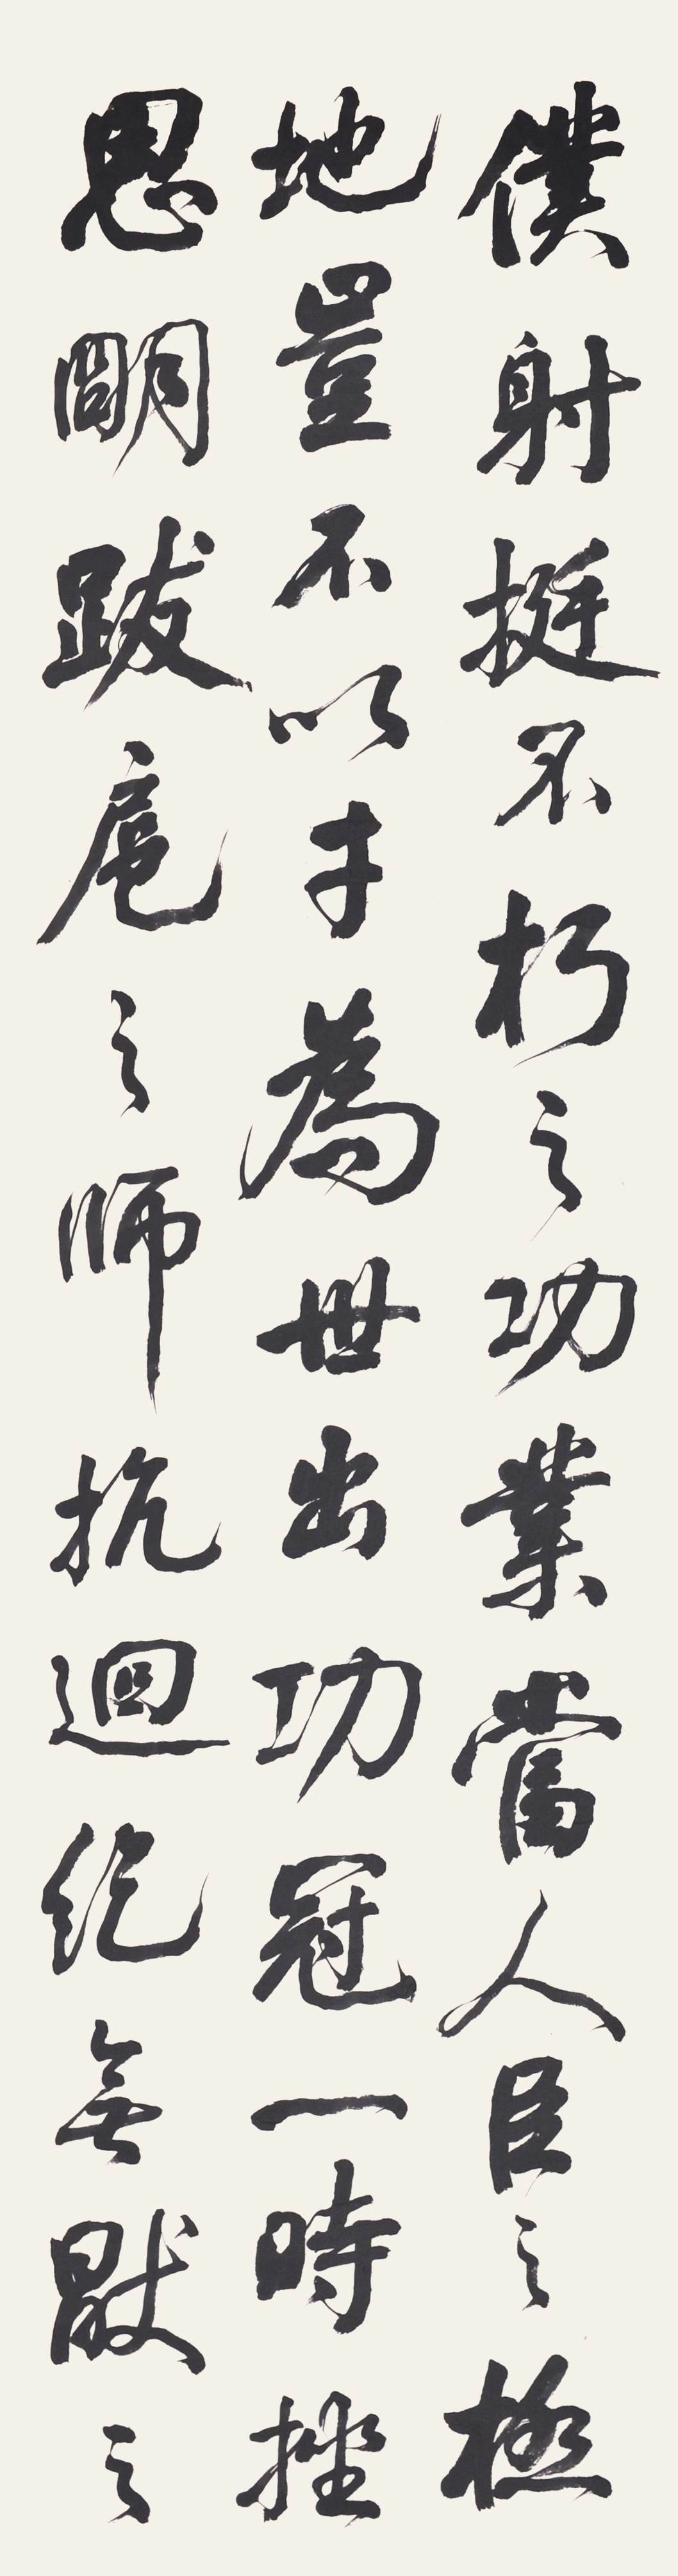 僕射挺不朽之功業當人臣之極
地豈不以才為世出功冠一時挫
思明跋扈之師抗迴紇無厭之